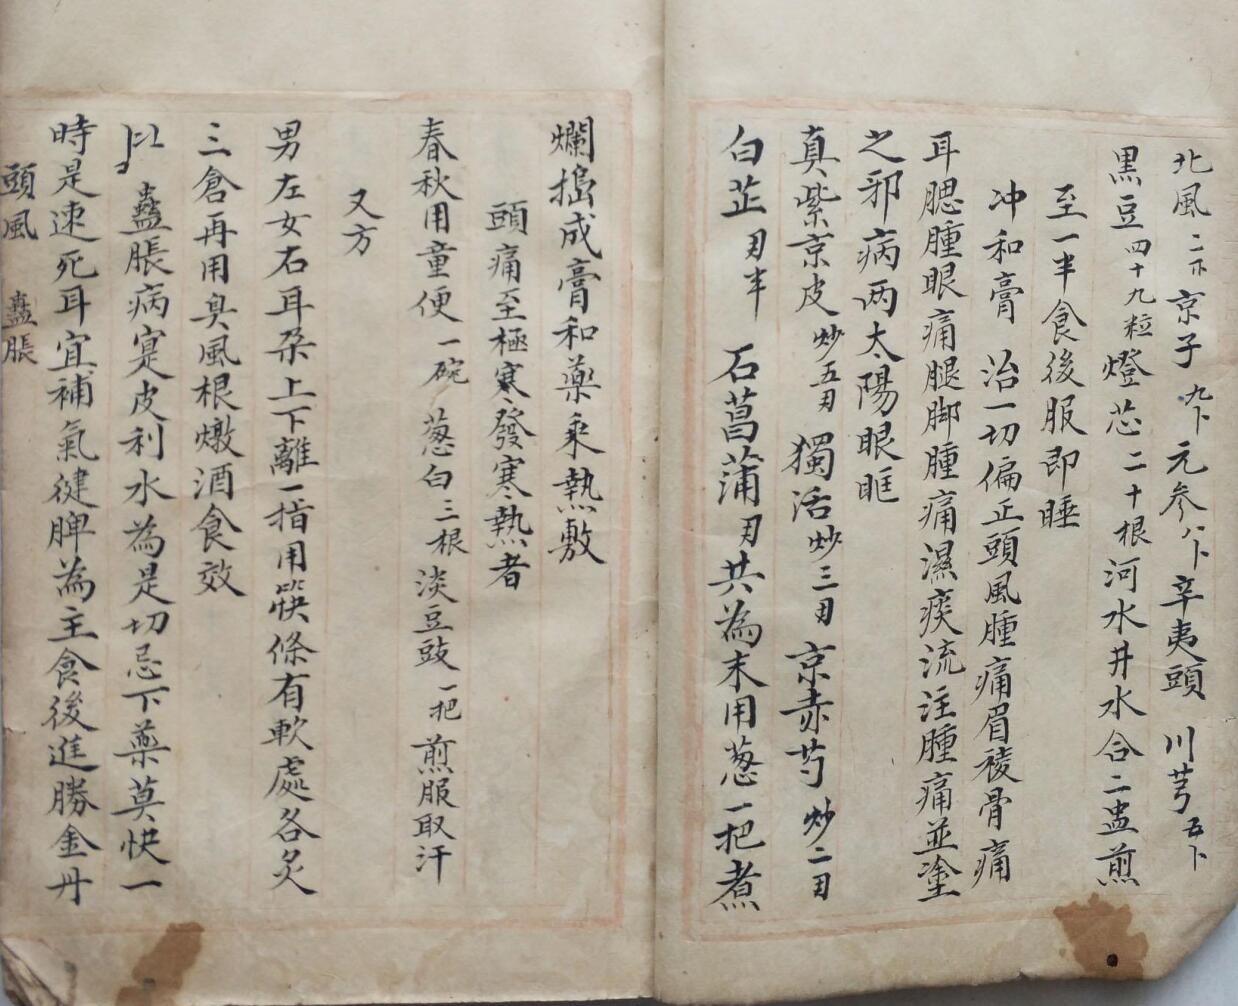 北風二下京子九下元参八下辛夷頭川芎五卜
黒豆四十九粒燈芯二十根河水井水合二盅煎
至一半食後服即睡
冲和膏 治一切偏正頭風腫痛眉稜骨痛
耳腮腫眼痛腿脚腫痛濕痰流注腫痛並塗
之邪病两太陽眼眶
真紫京皮炒五刄 獨活炒三刄 京赤芍炒二刄
白芷刄半 石菖蒲刄共為末用葱一把煮
爛搗成膏和藥乘熱敷
頭痛至極寒發寒熱者
春秋用童便一碗葱白三根淡豆豉一把煎服取汗
又方
男左女右耳朶上下離一指用筷條有軟處各炙
三倉再用臭風根燉酒食效
以 蠱脹病寔皮利水為是切忌下藥莫快一
時是速死耳宜補氣健脾為主食後進勝金丹
頭風 蠱脹